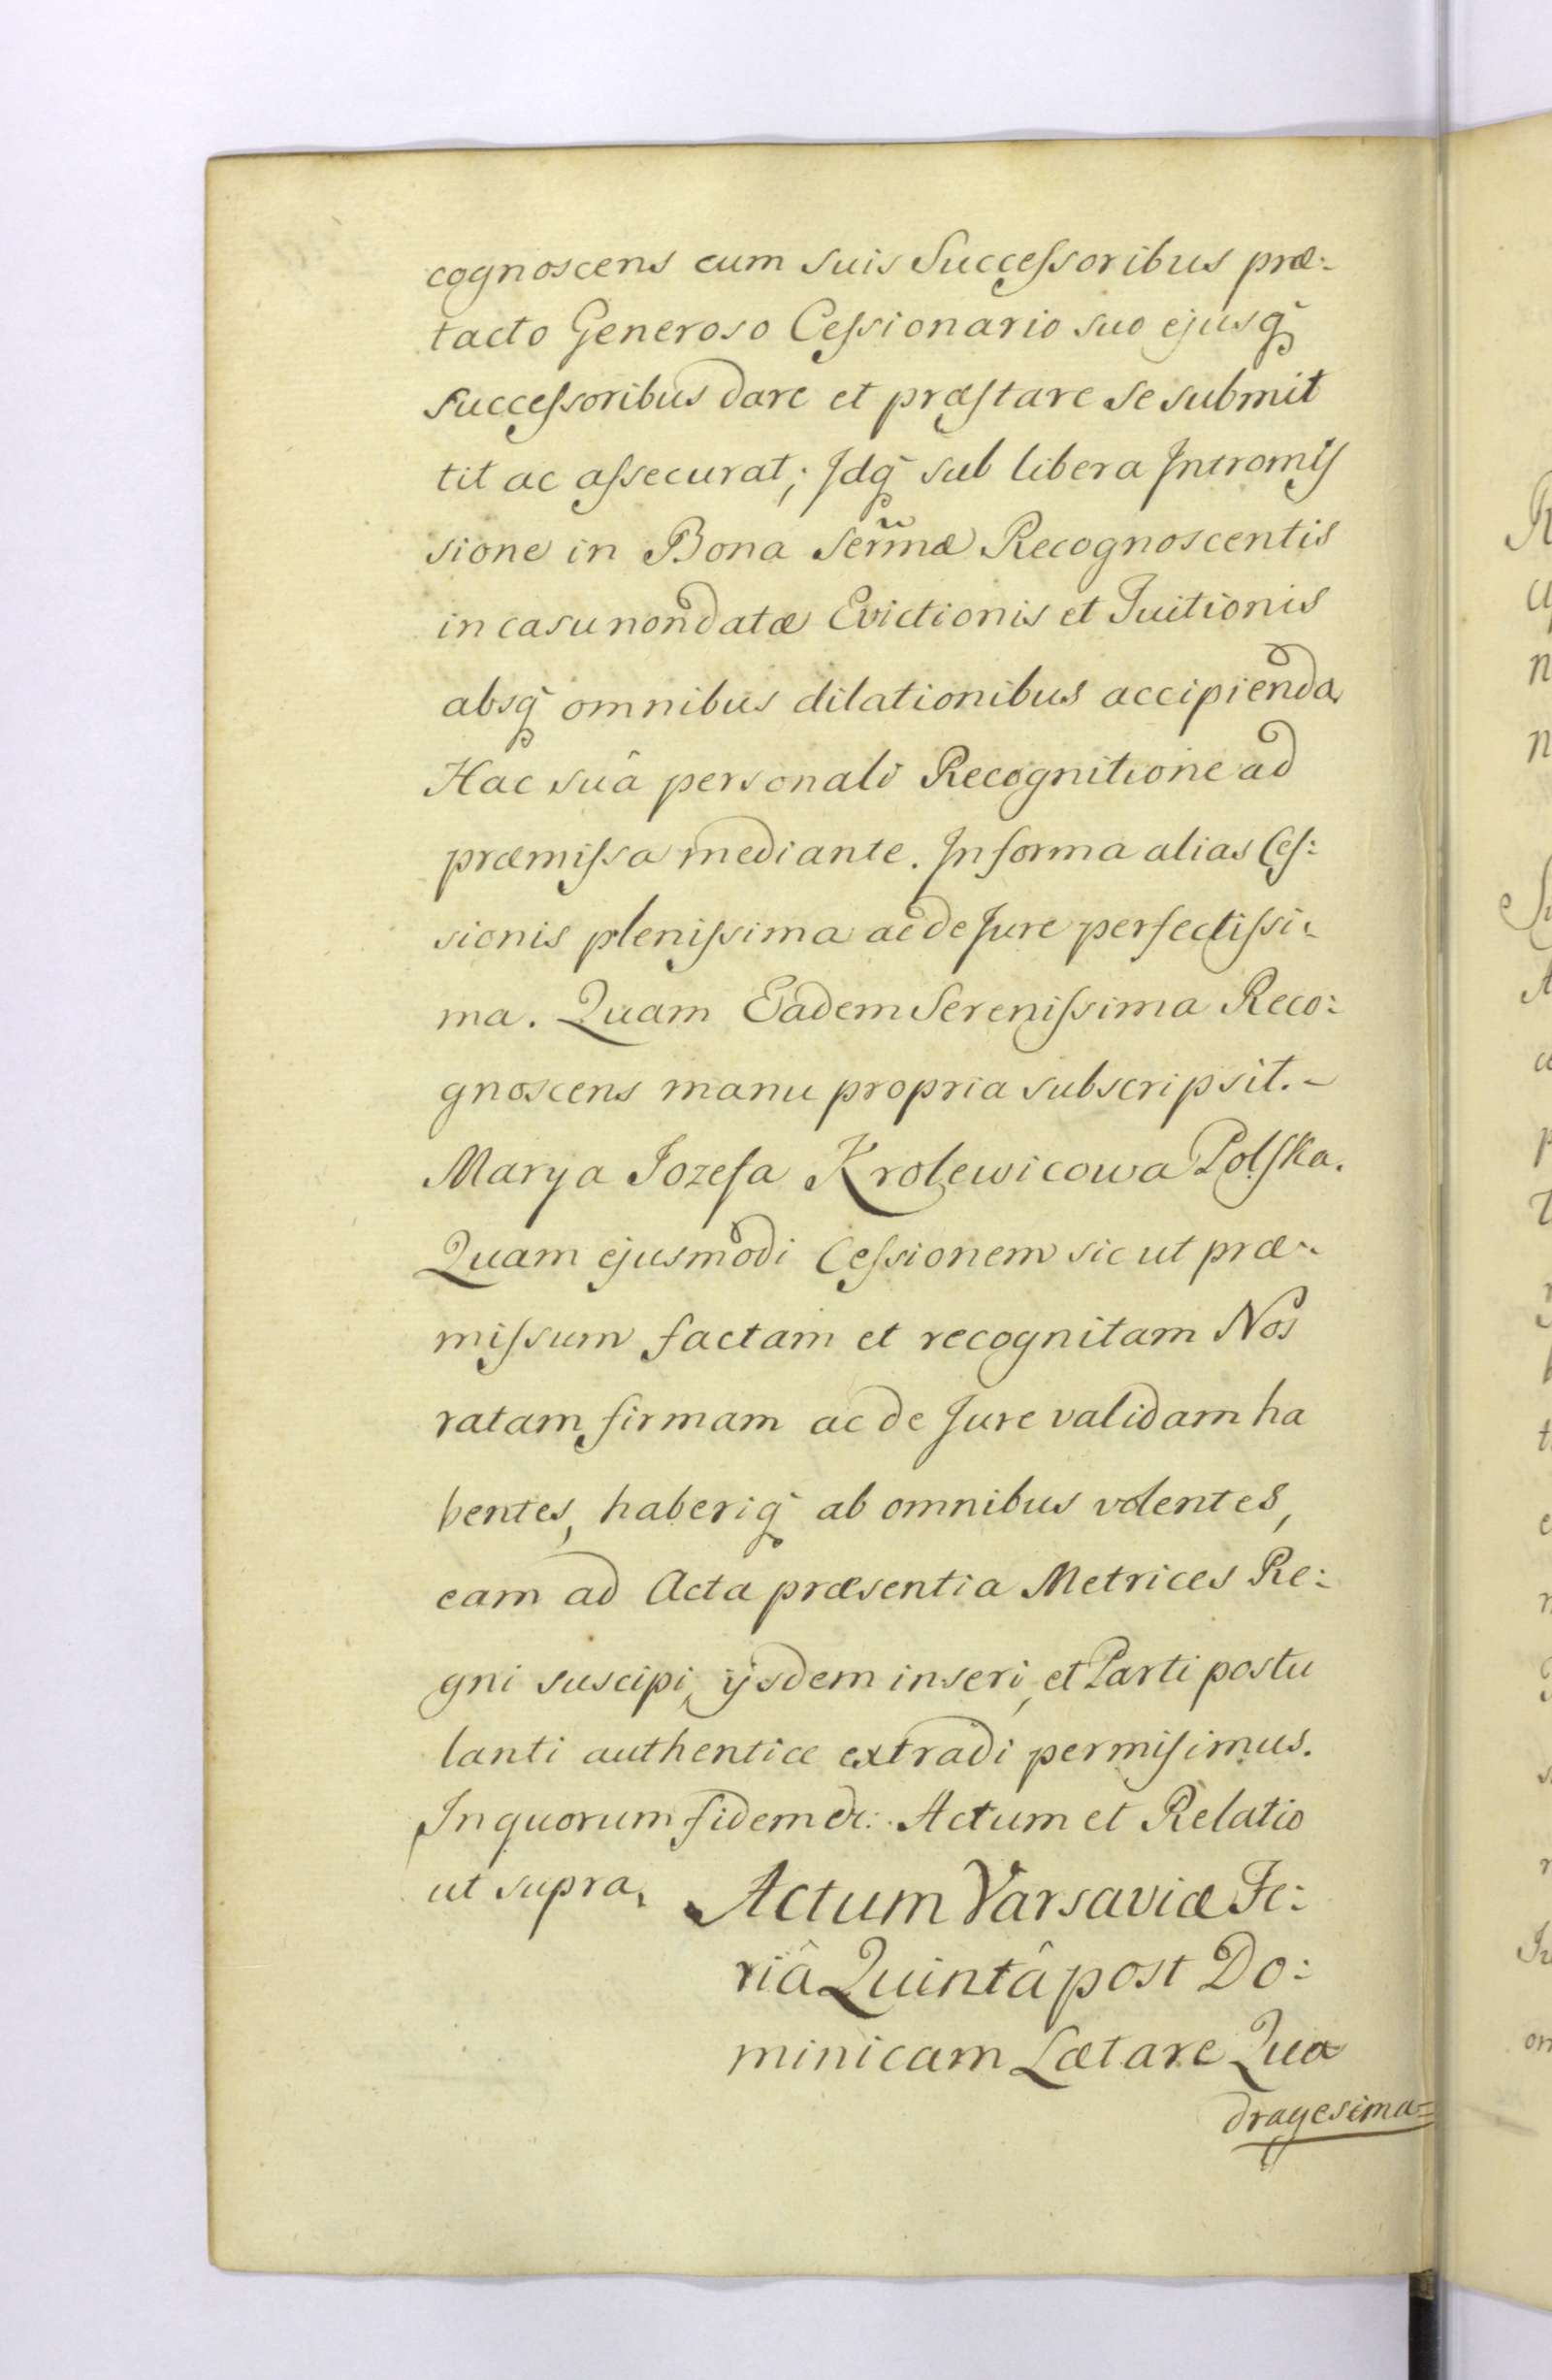 cognoscens cum suis Successoribus præ:
tacto Generoso Cessionario suo ejusq̃
successoribus dare et præstare se submit
tit ac assecurat; Idq̃ sub libera Intromis
sione in Bona Serm̃æ Recognoscentis
in casu non datæ Evictionis et Tuitionis
absq̃ omnibus dilationibus accipienda
Hac suâ personali Recognitione ad
præmissa mediante. In forma alias Ces:
sionis plenissima ac de Jure perfectissi:
ma. Quam Eadem Serenissima Reco:
gnoscens manu propria subscripsit.-
Marya Jozefa Krolewicowa Polska.
Quam ejusmodi Cessionem sic ut præ:
missum factam et recognitam Nos
ratam firmam ac de Jure validam ha
bentes, haberiq̃ ab omnibus volentes,
eam ad Acta præsentia Metrices Re:
gni suscipi, ijsdem inseri, et Parti postu
lanti authentice extradi permisimus.
In quorum fidem &c: Actum et Relatio
ut supra.
Actum Varsaviæ Fe:
riâ Quintâ post Do:
minicam Lætare Qua
dragesima=